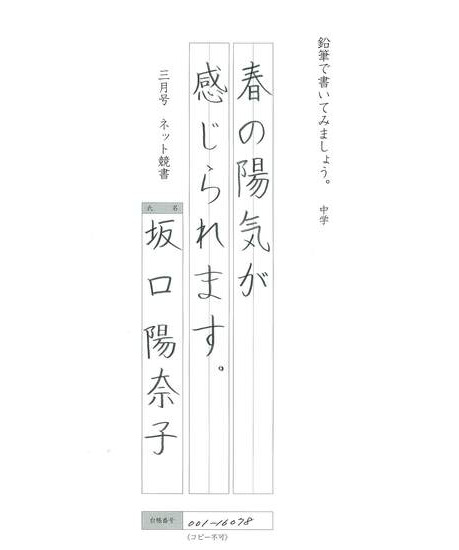 鉛筆で書いてみましょう。　中学
春の陽気が
感じられます。
三月号　ネット競書
氏名
坂口陽奈子
台帳番号　001-16078
(コピー不可)